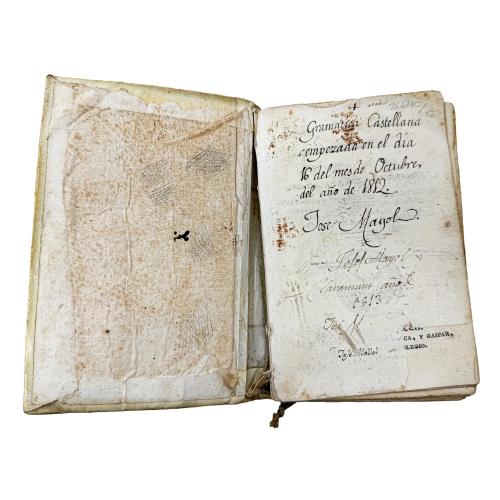 Gramatica Castellana
empezada en el dia
16 del mes de Octubre,
del año de 1812.
Jose Mayol
Josef Mayol
Claramunt año
1813
José M
CA, Y GASPAR,
Jose Mallol OLEGIO.